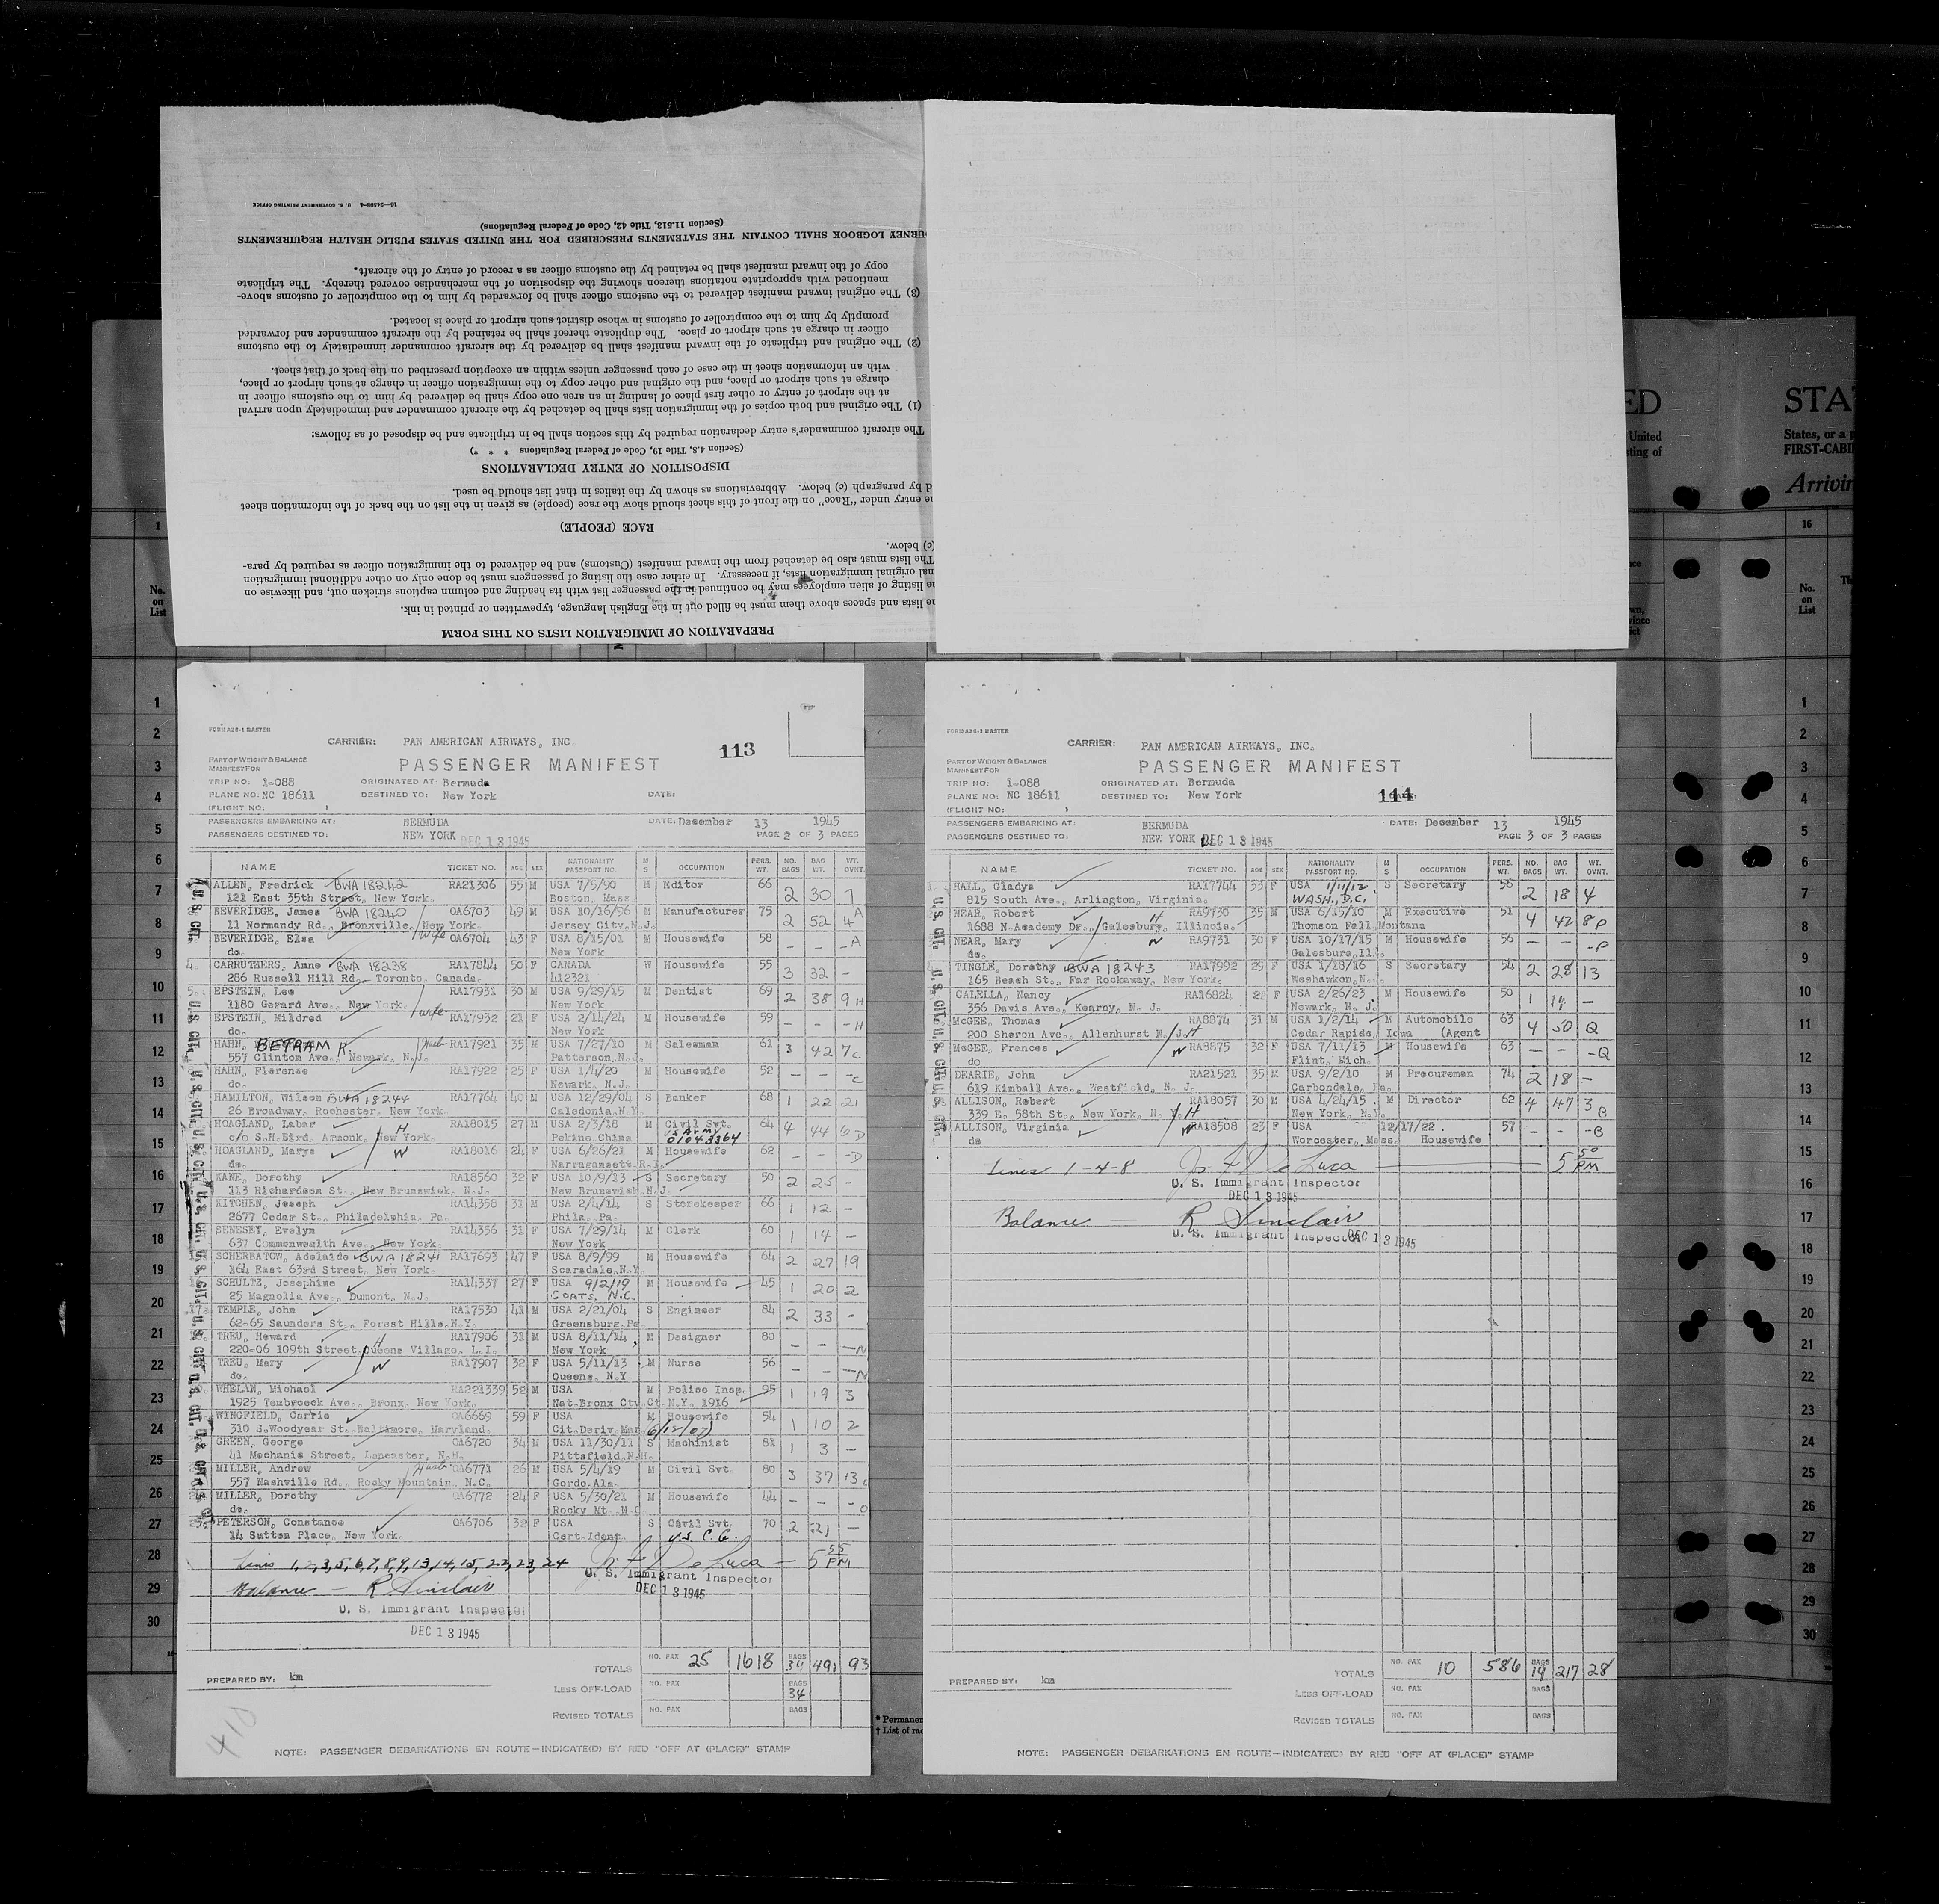 16—24598-4 U. S. GOVERNMENT PRINTING OFFICE
(Section 11.513, Title 42, Code of Federal Regulations)
URNEY LOGBOOK SHALL CONTAIN THE STATEMENTS PRESCRIBED FOR THE UNITED STATES PUBLIC HEALTH REQUIREMENTS
copy of the inward manifest shall be retained by the customs officer as a record of entry of the aircraft.
mentioned with appropriate notations thereon showing the disposition of the merchandise covered thereby. The triplicate
(3) The original inward manifest delivered to the customs officer shall be forwarded by him to the comptroller of customs above-
promptly by him to the comptroller of customs in whose district such airport or place is located.
officer in charge at such airport or place. The duplicate thereof shall be retained by the aircraft commander and forwarded
(2) The original and triplicate of the inward manifest shall be delivered by the aircraft commander immediately to the customs
with an information sheet in the case of each passenger unless within an exception prescribed on the back of that sheet.
charge at such airport or place, and the original and other copy to the immigration officer in charge at such airport or place,
at the airport of entry or other first place of landing in an area one copy shall be delivered by him to the customs officer in
(1) The original and both copies of the immigration lists shall be detached by the aircraft commander and immediately upon arrival
The aircraft commander's entry declaration required by this section shall be in triplicate and be disposed of as follows:
(Section 4.8, Title 19, Code of Federal Regulations * * *)
DISPOSITION OF ENTRY DECLARATIONS
d by paragraph (c) below. Abbreviations as shown by the italics in that list should be used.
he entry under "Race" on the front of this sheet should show the race (people) as given in the list on the back of the information sheet
RACE (PEOPLE)
(c) below.
The lists must also be detached from the inward manifest (Customs) and be delivered to the immigration officer as required by para-
nal original immigration lists, if necessary. In either case the listing of passengers must be done only on other additional immigration
he listing of alien employees may be continued in the passenger list with its heading and column captions stricken out, and likewise on
he lists and spaces above them must be filled out in the English language, typewritten or printed in ink.
PREPARATION OF IMMIGRATION LISTS ON THIS FORM
FORM A26-1 MASTER
CARRIER: PAN AMERICAN AIRWAYS, INC. 113
PART OF WEIGHT & BALANCE
MANIFEST FOR
PASSENGER MANIFEST
TRIP NO: 1-088 ORIGINATED AT: Bermuda
PLANE NO: NC 18611 DESTINED TO: New York DATE:
(FLIGHT NO: )
PASSENGERS EMBARKING AT: BERMUDA DATE: December 13 1945
PASSENGERS DESTINED TO: NEW YORK DEC 13 1945 PAGE 2 OF 3 PAGES
NAME TICKET NO. AGE SEX NATIONALITY PASSPORT NO. M S OCCUPATION PERS. WT. NO. BAGS BAG WT. WT. OVNT.
ALLEN, Fredrick BWA 18242 RA21306 55 M USA 7/5/90 M Editor 66 2 30 7
121 East 35th Street, New York. Boston, Mass
BEVERIDGE, James BWA 18240 OA6703 49 M USA 10/16/96 M Manufacturer 75 2 52 4A
11 Normandy Rd., Bronxville, New York. Jersey City, N.J.
BEVERIDGE, Elsa wife OA6704 43 F USA 8/15/01 M Housewife 58 - - -A
do. New York
CARHUTHERS, Anne BWA 18238 RA17844 50 F CANADA W Housewife 55 3 32 -
286 Russell Hill Rd., Toronto, Canada. 412321
EPSTEIN, Lee RA17931 30 M USA 9/29/15 M Dentist 69 2 38 9 H
1180 Gerard Ave., New York. New York
EPSTEIN, Mildred wife RA17932 21 F USA 2/14/24 M Housewife 59 - - -H
do. New York
HAHN, BETRAM K. Husb RA17921 35 M USA 7/27/10 M Salesman 61 3 42 7c
557 Clinton Ave., Newark, N.J. Patterson, N.J.
HAHN, Florence RA17922 25 F USA 1/4/20 M Housewife 52 - - -c
do. Newark, N.J.
HAMILTON, Wilson BWA 18244 RA17764 40 M USA 12/29/04 M Banker 68 1 22 21
26 Broadway, Rochester, New York. Caledonia, N.Y.
HOAGLAND, Labar H RA18015 27 M USA 2/3/18 M Civil Svt. 64 4 44 6D
c/o S.H.Bird, Armonk, New York. Peking China US Army 01043364
HOAGLAND, Marya W RA18016 24 F USA 6/26/21 M Housewife 62 - - -D
do. Narragansett R.I.
KANE, Dorothy RA18560 32 F USA 10/9/13 S Secretary 50 2 25 -
113 Richardson St., New Brunswick, N.J. New Brunswick N.J.
KITCHEN, Joseph RA14358 31 M USA 2/4/14 S Storekeeper 66 1 12 -
2677 Cedar St., Philadelphia, Pa. Phila. Pa.
SENESEY, Evelyn RA14356 31 F USA 7/29/14 M Clerk 60 1 14 -
637 Commonwealth Ave., New York. New York
SCHERBATOW, Adelaide BWA 18241 RA17693 47 F USA 8/9/99 M Housewife 64 2 27 19
164 East 63rd Street, New York. Scarsdale, N.Y.
SCHULTZ, Josephine RA14337 27 F USA 9/2/19 M Housewife 45 1 20 2
25 Magnolia Ave., Dumont, N.J. COATS, N.C.
TEMPLE, John RA17530 41 M USA 2/21/04 S Engineer 84 2 33 -
62-65 Saunders St., Forest Hills, N.Y. Greensburg, Pa.
TREU, Howard H RA17906 31 M USA 8/11/14 M Designer 80 - - -N
220-06 109th Street, Queens Village, L.I. New York
TREU, Mary W RA17907 32 F USA 5/11/13 M Nurse 56 - - -N
do. Queens, N.Y
WHELAN, Michael RA221339 52 M USA M Police Insp. 95 1 19 3
1925 Tenbroeck Ave., Bronx, New York. Nat-Bronx Cty Ct. N.Y. 1916
WINGFIELD, Carrie OA6669 59 F USA M Housewife 54 1 10 2
310 S.Woodyear St., Baltimore, Maryland. Cit.Deriv Mar. 6/12/07)
GREEN, George OA6720 34 M USA 11/30/11 S Machinist 81 1 3 -
41 Mechanic Street, Lancaster, N.H. Pittsfield, N.H.
MILLER, Andrew Husb OA6771 26 M USA 5/4/19 M Civil Svt. 80 3 37 13
557 Nashville Rd., Rocky Mountain, N.C. Gordo.Ala.
MILLER, Dorothy OA6772 24 F USA 5/30/21 M Housewife 44 - - -O
do. Rocky Mt. N.C
PETERSON, Constance OA6706 32 F USA S Civil Svt. 70 2 21 -
14 Sutton Place, New York. Cert.Ident. U.S.C.G.
Lines 1,2,3,5,6,7,8,9,13,14,15,22,23,24 De Luca - 5 55 PM
U. S. Immigrant Inspector
Balance - R Sinclair DEC 13 1945
U. S. Immigrant Inspector
DEC 13 1945
TOTALS NO. PAX 25 1618 BAGS 34 491 93
PREPARED BY: km
LESS OFF-LOAD NO. PAX BAGS 34
REVISED TOTALS NO. PAX BAGS
410
NOTE: PASSENGER DEBARKATIONS EN ROUTE—INDICATE(D) BY RED "OFF AT (PLACE)" STAMP
FORM A26-1 MASTER
CARRIER: PAN AMERICAN AIRWAYS, INC.
PART OF WEIGHT & BALANCE
MANIFEST FOR
PASSENGER MANIFEST
TRIP NO: 1-088 ORIGINATED AT: Bermuda
PLANE NO: NC 18611 DESTINED TO: New York 114
(FLIGHT NO: )
PASSENGERS EMBARKING AT: BERMUDA DATE: December 13 1945
PASSENGERS DESTINED TO: NEW YORK DEC 13 1945 PAGE 3 OF 3 PAGES
NAME TICKET NO. AGE SEX NATIONALITY PASSPORT NO. M S OCCUPATION PERS. WT. NO. BAGS BAG WT. WT. OVNT.
HALL, Gladys RA17744 33 F USA 1/11/12 S Secretary 56 2 18 4
815 South Ave., Arlington, Virginia. WASH., D.C.
NEAR, Robert H RA9730 35 M USA 6/15/10 M Executive 51 4 42 8P
1688 N.Academy Dr., Galesburg, Illinois. Thomson Fall Montana
NEAR, Mary W RA9731 30 F USA 10/17/15 M Housewife 56 - - -P
do. Galesburg, Ill.
TINGLE, Dorothy BWA 18243 RA17992 29 F USA 1/18/16 S Secretary 54 2 28 13
165 Beach St., Far Rockaway, New York. Weehawken, N.J.
CALELLA, Nancy RA16824 22 F USA 2/26/23 M Housewife 50 1 14 -
356 Davis Ave., Kearny, N. J. Newark, N. J.
McGEE, Thomas RA8874 31 M USA 1/2/14 M Automobile 63 4 50 Q
200 Sheron Ave., Allenhurst N. J. H Cedar Rapids, Iowa (Agent
McGEE, Frances W RA8875 32 F USA 7/11/13 M Housewife 63 - - -Q
do Flint, Mich.
DEARIE, John RA21521 35 M USA 9/2/10 M Procureman 74 2 18 -
619 Kimball Ave., Westfield, N. J. Carbondale, Pa.
ALLISON, Robert RA18057 30 M USA 4/24/15 M Director 62 4 47 3B
339 E. 58th St., New York, N. Y. H New York, N.Y.
ALLISON, Virginia W RA18508 23 F USA 12/17/22 57 - - -B
do Worcester, Mass. Housewife
Lines 1-4-8 De Luca 5 50 PM
U. S. Immigrant Inspector
DEC 13 1945
Balance — R Sinclair
U. S. Immigrant Inspector DEC 13 1945
TOTALS NO. PAX 10 586 BAGS 19 217 28
PREPARED BY: km
LESS OFF-LOAD NO. PAX BAGS
REVISED TOTALS NO. PAX BAGS
NOTE: PASSENGER DEBARKATIONS EN ROUTE—INDICATE(D) BY RED "OFF AT (PLACE)" STAMP
ED
United
ting of
STA
States, or a p
FIRST-CABI
Arrivin
No. on List
* Permanen
† List of rac